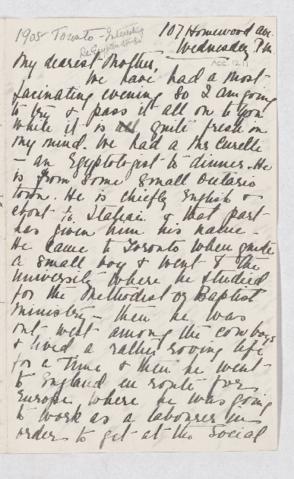 1908 Toronto - Interesting
107 Homewood Ave.
Re Egyptologist
Wednesday Pm
My dearest Mother,
We have had a most
facinating evening so I am going
to try & pass it all on to you
while it is quite fresh in
my mind. We had a Mr Curelle
- an Egyptologist to dinner. He
is from some small Ontario
town. He is chiefly English &
Italian & that part
has given him his name.
He came to Toronto when quite
a small boy & went to the
University where he studied
for the Methodist or Baptist
Ministry - then he was
out west among the cowboys
& lived a rather roving life
for a time & then he went
to England en route for
Europe where he was going
to work as a labourer in
order to get at the Social